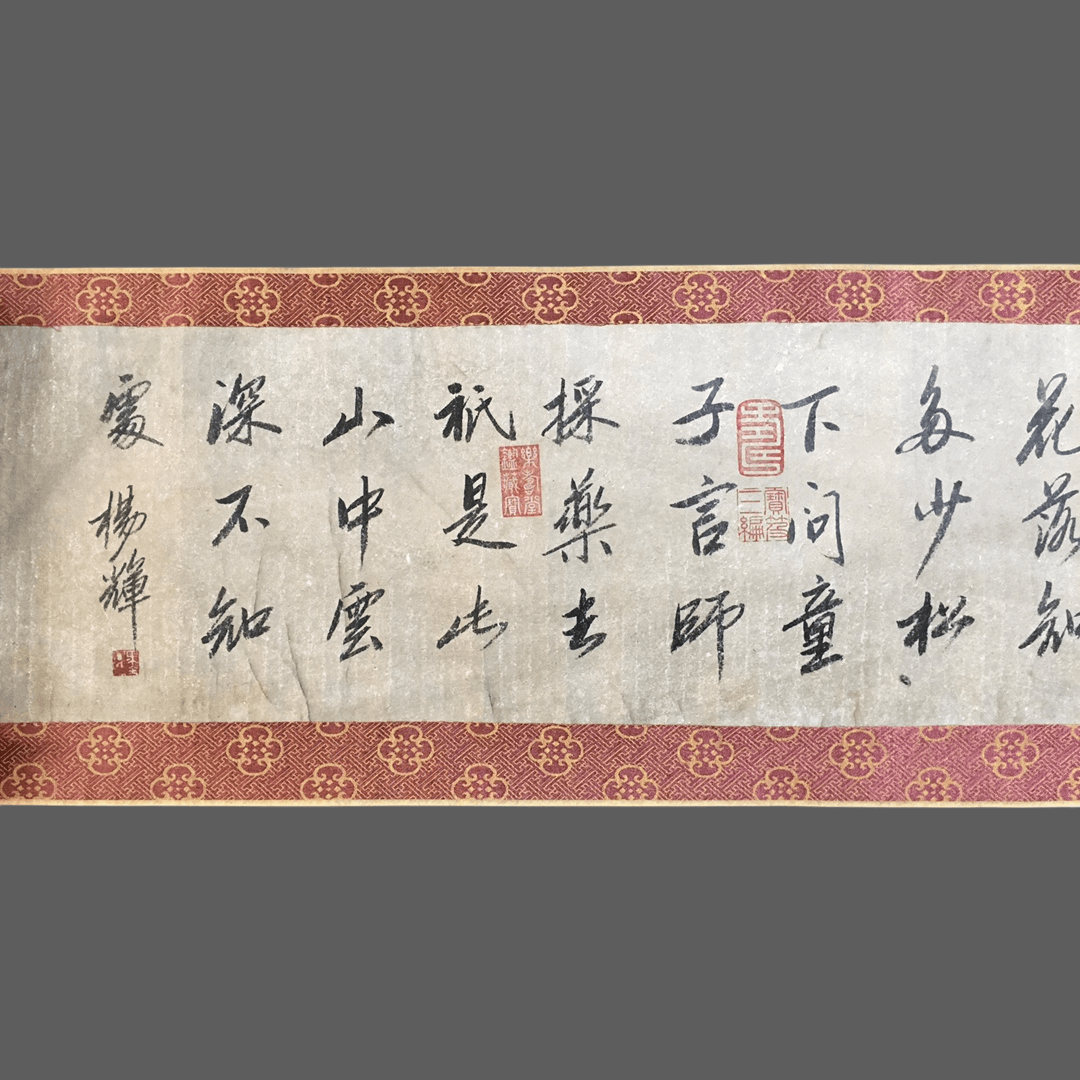 花落知
多少松
下問童
子言師
採藥去
祇是此
山中雲
深不知
處 楊輝
樂善堂鑑藏寶